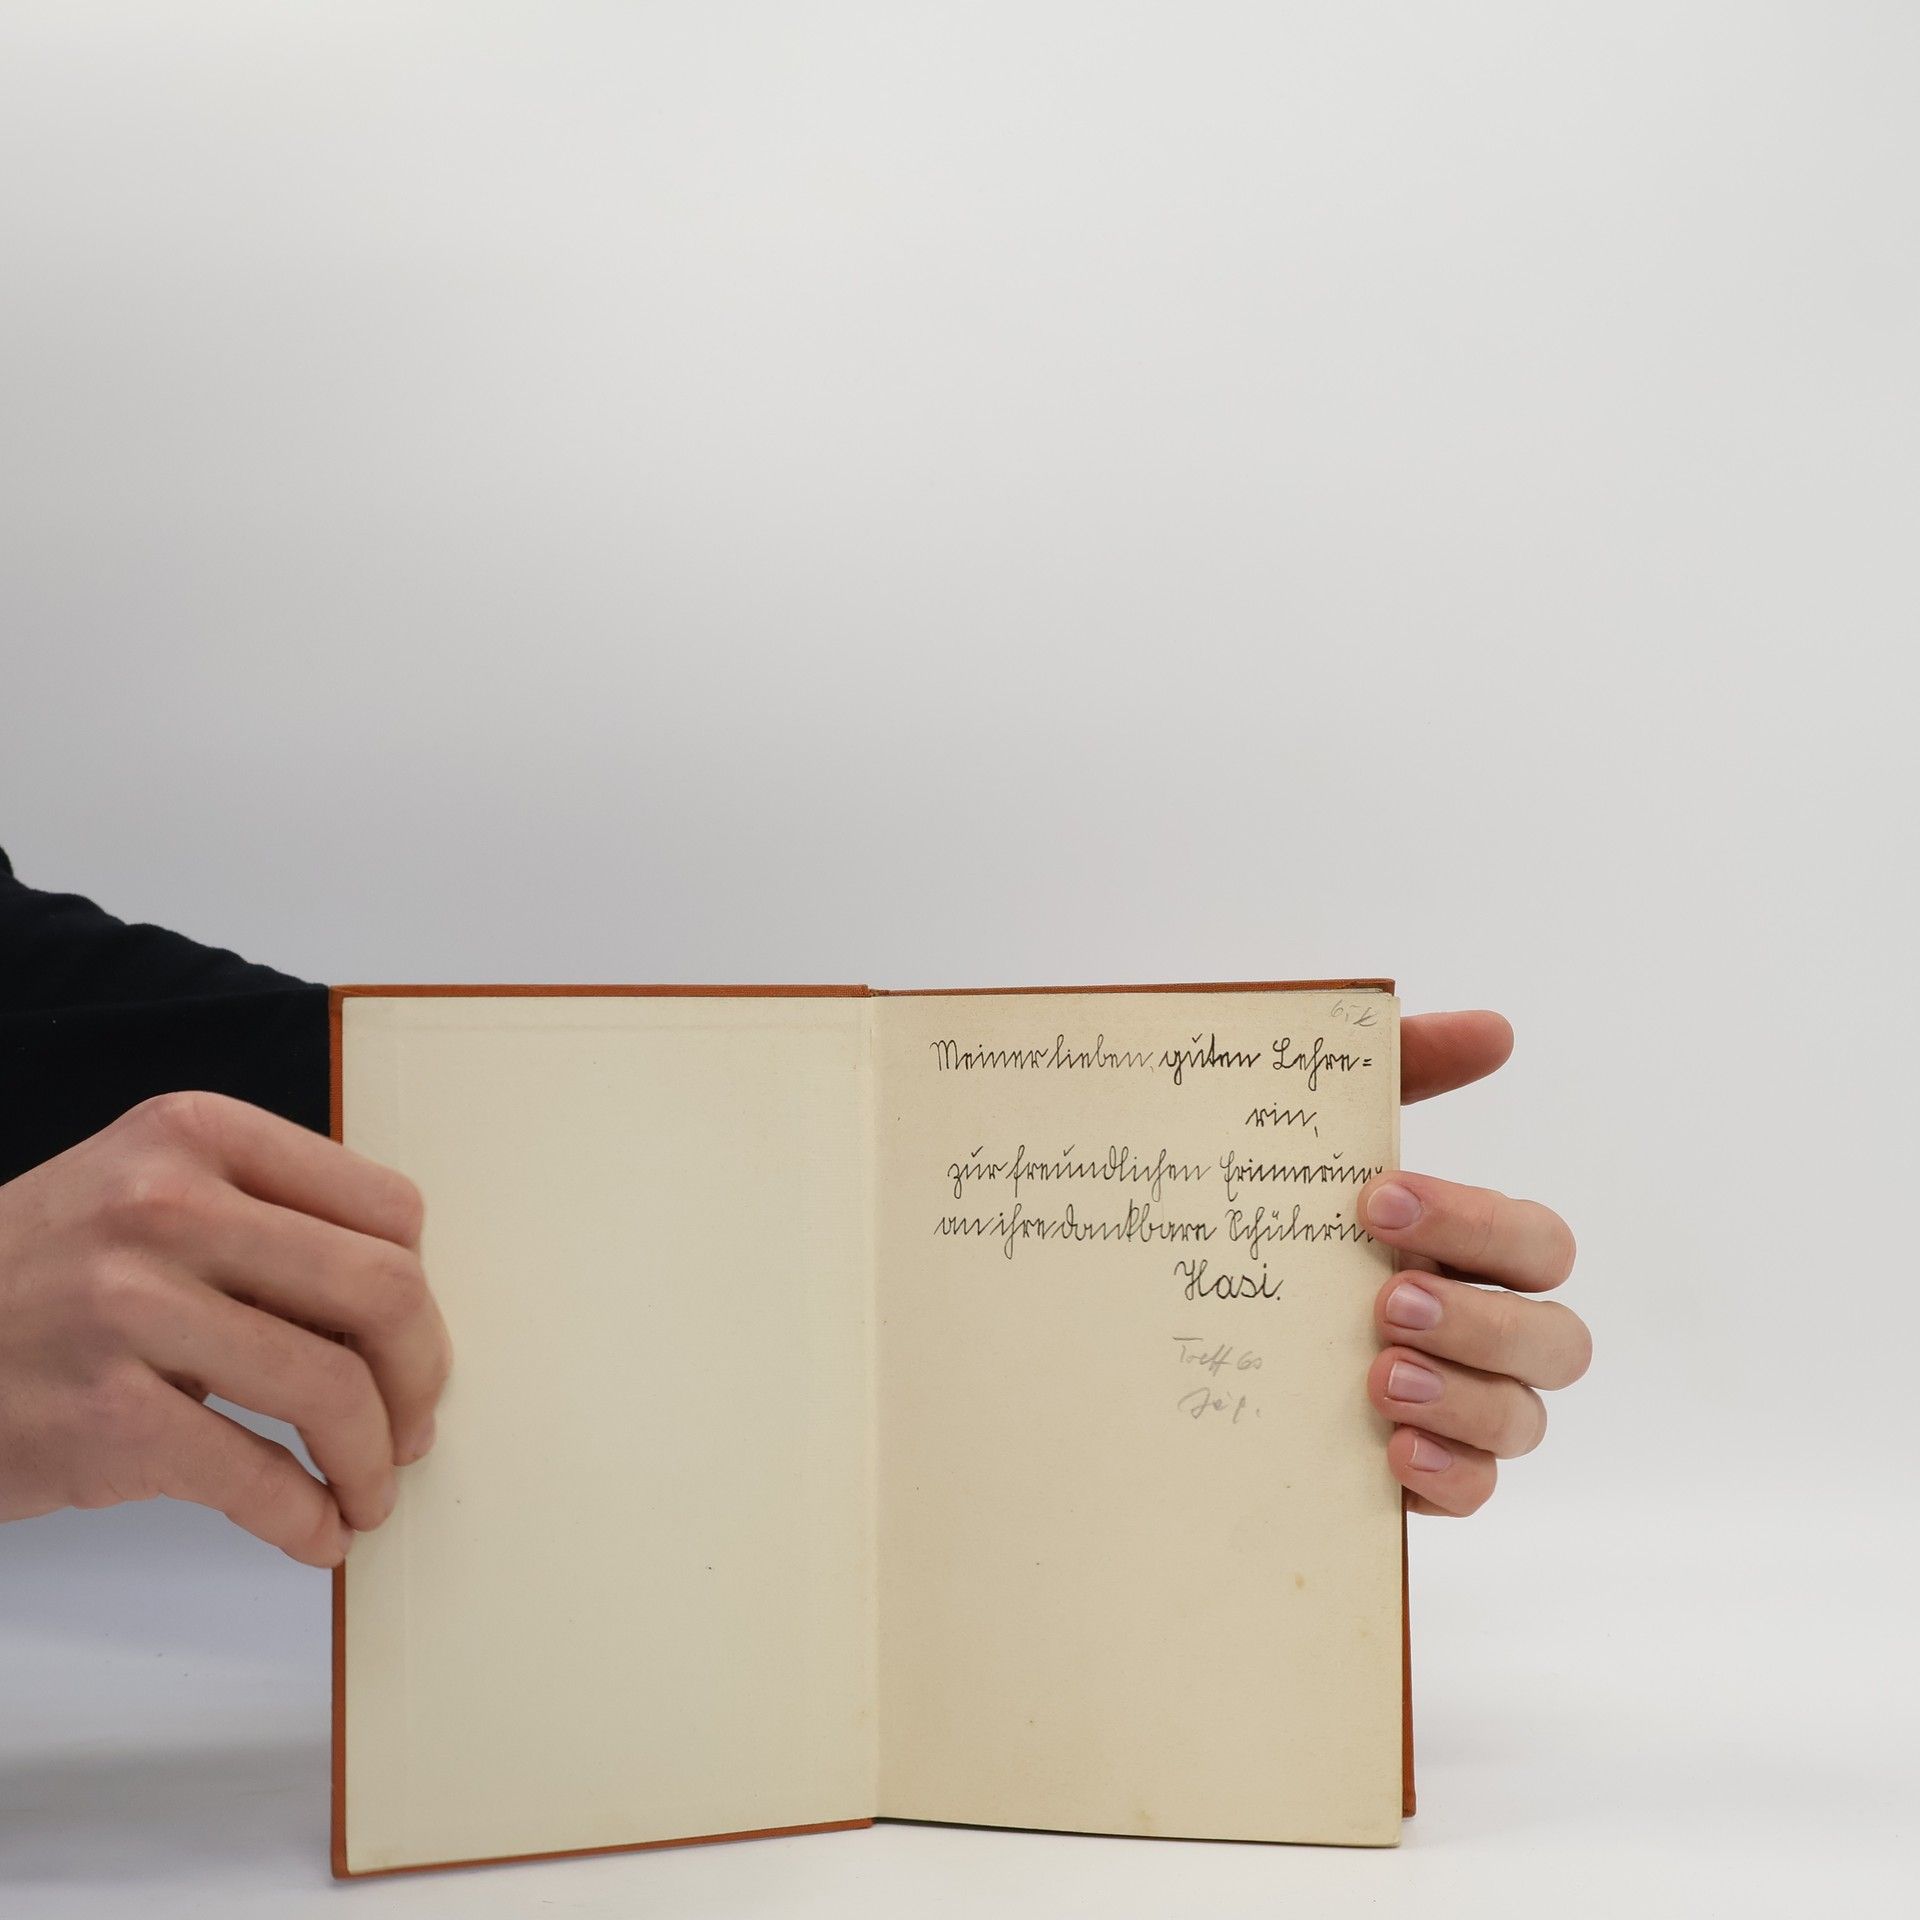 Meiner lieben, guten Lehre=
rin,
zur freundlichen Erinnerung
an ihre dankbare Schülerin
Hasi.
Treff 60